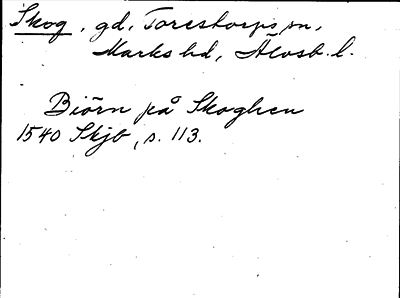 Skog, gd, Torestorps sn,
Marks hd, Älvsb. l.
Biörn på Skoghen
1540 Skjb, s. 113.